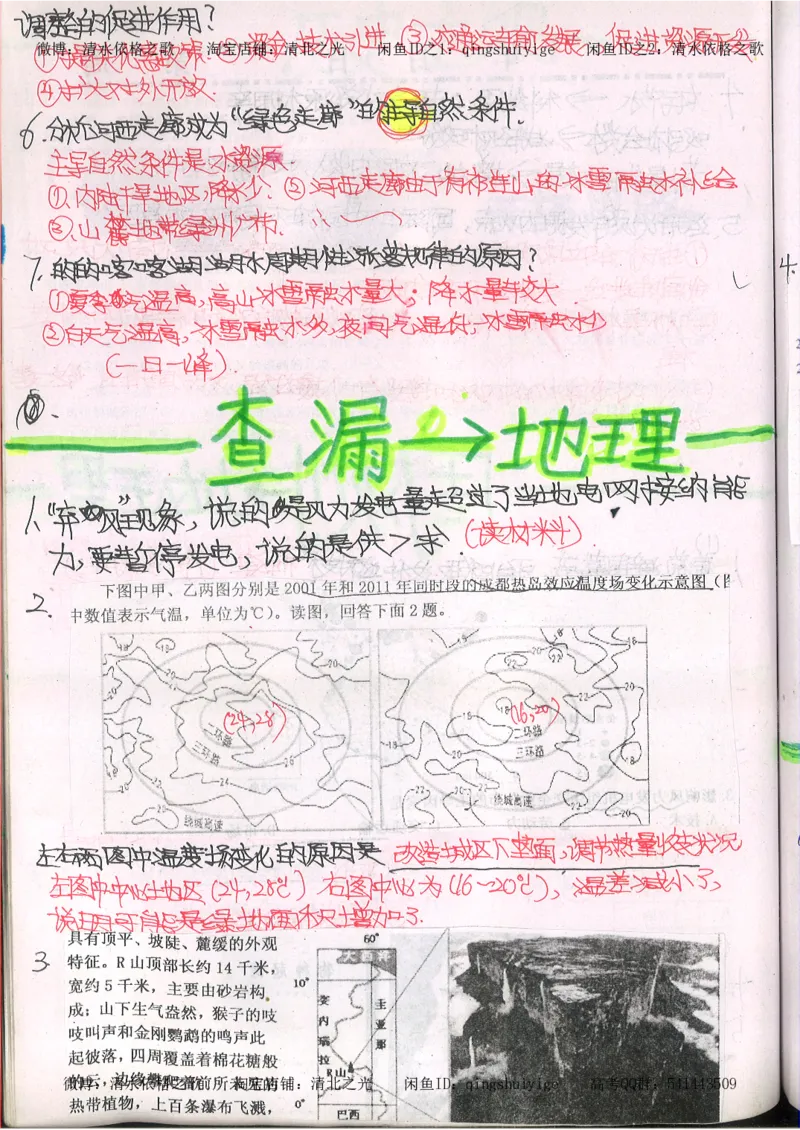 调整的促进作用？
微博：清水依格之歌 淘宝店铺：清北之光 闲鱼ID之1：qingshuiyige 闲鱼ID之2：清水依格之歌
④扩大对外开放.
6.分析河西走廊成为“绿色走廊”的主导自然条件.
主导自然条件是水资源.
①.内陆干旱地区,降水少 ②河西走廊由于有祁连山的冰雪融水补给
③.山麓地带绿洲广布.
7.的的喀喀湖湖水周期性涨落规律的原因？
①夏季气温高,高山冰雪融水量大;降水量较大
②白天气温高,冰雪融水多,夜间气温低,冰雪融水少
(一日一峰)
查漏→地理
1.“弃风”现象,说的是风力发电量超过了当地电网接纳能
力,要暂停发电,说的是供>求. (读材料)
2. 下图中甲、乙两图分别是2001年和2011年同时段的成都热岛效应温度场变化示意图（图
中数值表示气温，单位为℃）。读图，回答下面2题。
(24,28) 二环路 三环路 绕城高速
(16,20) 二环路 三环路 绕城高速
左右两图中温度场变化的原因是 改造城区下垫面,调节热量收支状况
左图中中心地区(24,28℃) 右图中心为(16~20℃),温差减小了,
说明可能是绿地面积增加了.
3 具有顶平、坡陡、麓缓的外观
特征。R山顶部长约14千米，
宽约5千米，主要由砂岩构
成；山下生气盎然，猴子的吱
吱叫声和金刚鹦鹉的鸣声此
起彼落，四周覆盖着棉花糖般
微博：清水依格之歌 淘宝店铺：清北之光 闲鱼ID：qingshuiyige 高考QQ群：541443509
热带植物，上百条瀑布飞溅，
60° 大西洋
10°
委内瑞拉 圭亚那
R山
0° 巴西
4.